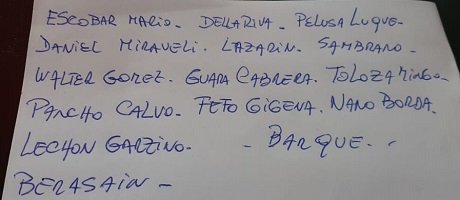 ESCOBAR MARIO - DELLARIVA - PELUSA LUQUE -
DANIEL MIRAVELI. LAZARIN. SAMBRANO -
WALTER GOMEZ - GUARA CABRERA. TOLOZA MINGO -
PANCHO CALVO - FETO GIGENA. NANO BORDA.
LECHON GARZINO - - BARQUE - -
BERASAIN -